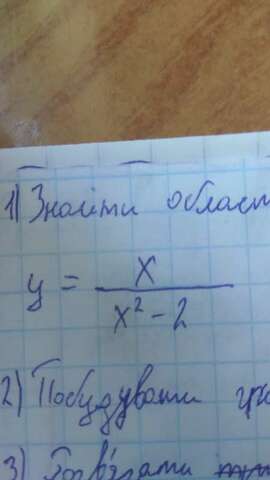 1) Знайти област
y = x / x² - 2
2) Побудувати гра
3) Розв'язати